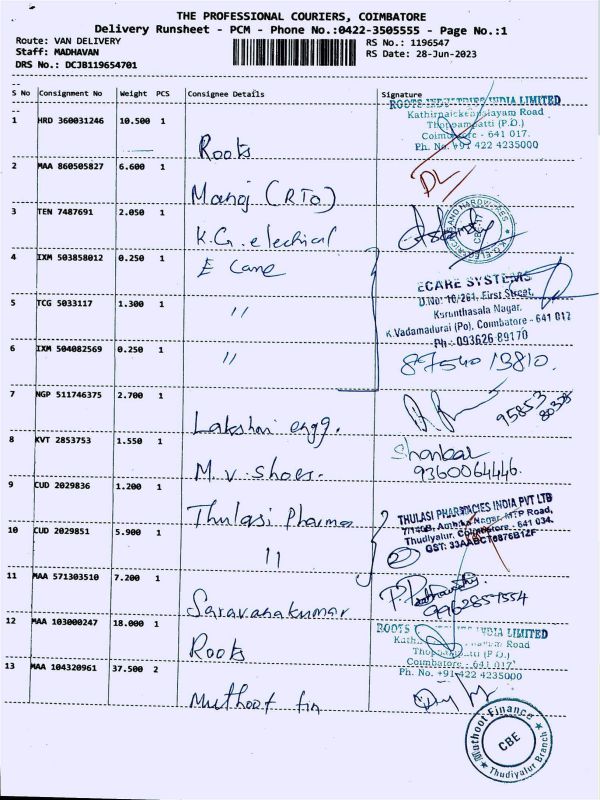 THE PROFESSIONAL COURIERS, COIMBATORE
Delivery Runsheet - PCM - Phone No.:0422-3505555 - Page No.:1
Route: VAN DELIVERY
Staff: MADHAVAN
DRS No.: DCJB119654701
RS No.: 1196547
RS Date: 28-Jun-2023
S No Consignment No Weight PCS Consignee Details Signature
1 HRD 360031246 10.500 1 Roots
ROOTS INDUSTRIES INDIA LIMITED
Kathirnaickenpalayam Road
Thoppampatti (P.O.)
Coimbatore - 641 017.
Ph. No. +91 422 4235000
2 MAA 860505827 6.600 1 Manoj (RTO)
3 TEN 7487691 2.050 1 K.G. electrical
4 IXM 503858012 0.250 1 E Care
ECARE SYSTEMS
D.No: 10/261, First Street,
Kurunthasala Nagar,
K.Vadamadurai (Po), Coimbatore - 641 017
Ph : 093626 89170
5 TCG 5033117 1.300 1 "
6 IXM 504082569 0.250 1 " 87540 13810.
7 NGP 511746375 2.700 1 Lakshmi engg. 95853
8 KVT 2853753 1.550 1 M.V. Shoes. Shankar
9360064446.
9 CUD 2029836 1.200 1 Thulasi Pharma
THULASI PHARMACIES INDIA PVT LTD
7/140B, Ambika Nagar, MTP Road,
Thudiyalur, Coimbatore - 641 034.
10 CUD 2029851 5.900 1 "
11 MAA 571303510 7.200 1 Saravanakumar
12 MAA 103000247 18.000 1 Roots
ROOTS INDUSTRIES INDIA LIMITED
Road
Thoppampatti (P.O.)
Coimbatore - 641 017.
Ph. No. +91 422 4235000
13 MAA 104320961 37.500 2 Muthoot fin
Muthoot Finance
CBE
Thudiyalur Branch